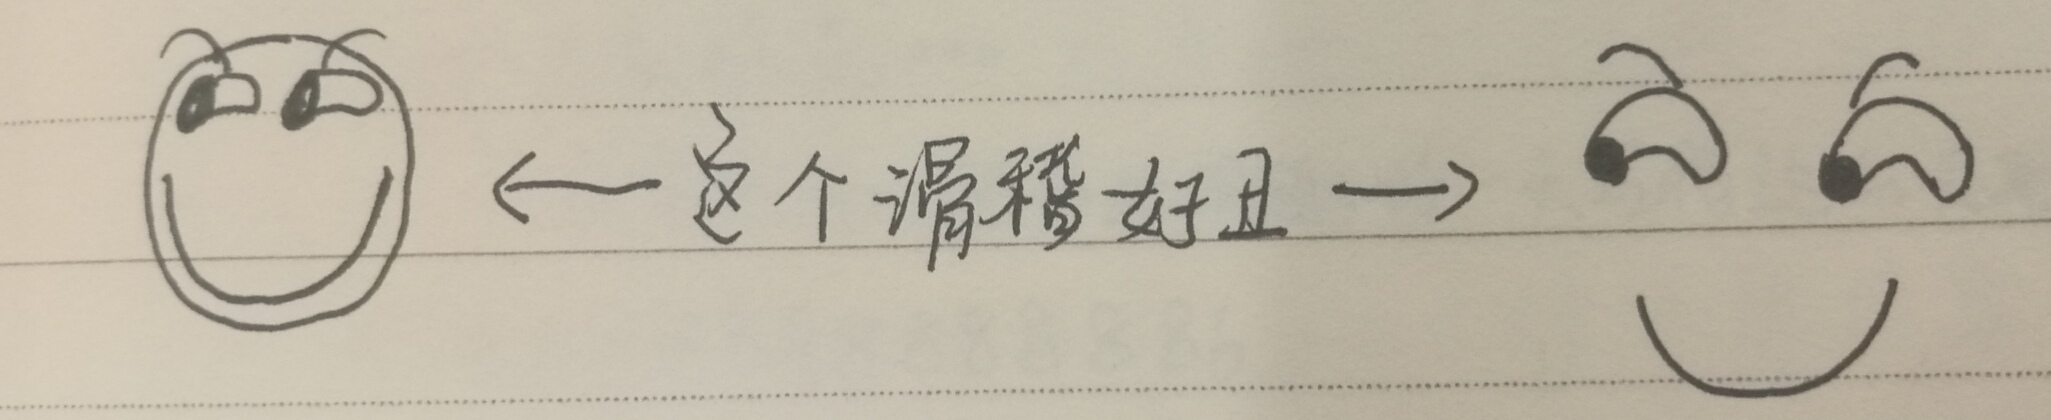 ← 这个滑稽好丑 →